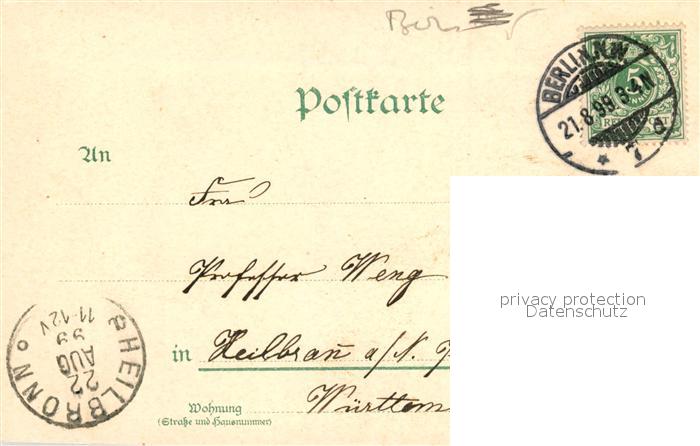 BERLIN N.W.
21.8.99 3-4N
7 a
5
REICHSPOST
Postkarte
An
Frau
Professor Weng
privacy protection
Datenschutz
in Heilbronn a/N.
Württem
Wohnung
(Straße und Hausnummer)
HEILBRONN
22
AUG
99
11-12V